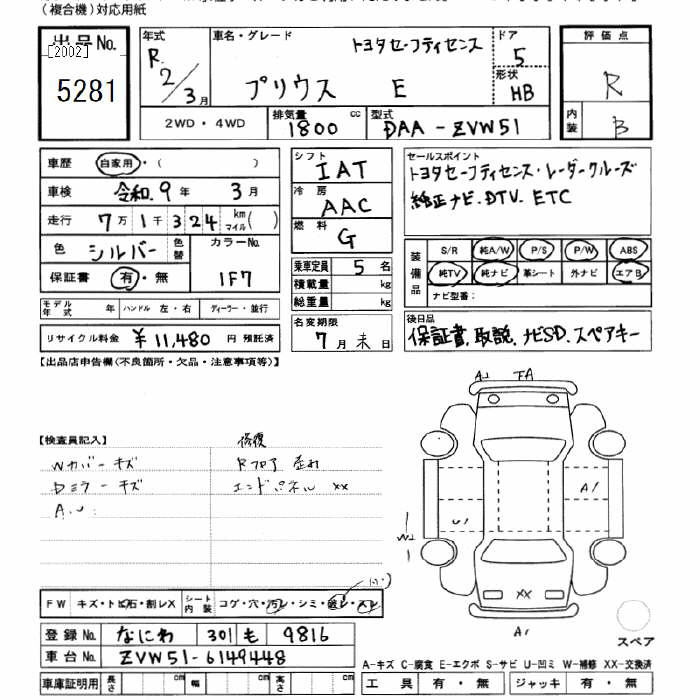 (複合機)対応用紙
出品No. [2002] 5281
年式 R 2/3月
車名・グレード トヨタセーフティセンス プリウス E
ドア 5
形状 HB
評価点 R
内装 B
2WD・4WD
排気量 1800 cc
型式 DAA-ZVW51
車歴 自家用・( )
車検 令和 9年 3月
走行 7万1千324 km マイル( )
色 シルバー 色替 カラーNo. 1F7
保証書 有・無
モデル年式 年 ハンドル 左・右 ディーラー・並行
リサイクル料金 ¥11,480 円 預託済
シフト IAT
冷房 AAC
燃料 G
乗車定員 5名
積載量 kg
総重量 kg
名変期限 7月末日
セールスポイント
トヨタセーフティセンス・レーダークルーズ
純正ナビ・DTV・ETC
装備品 S/R 純A/W P/S P/W ABS
純TV 純ナビ 革シート 外ナビ エアB
ナビ型番:
後日品
保証書、取説、ナビSD、スペアキー
【出品店申告欄(不良箇所・欠品・注意事項等)】
【検査員記入】 修復
Wカバーキズ Rフロア歪れ
Dミラーキズ エンドパネル XX
A.U:
A1 FA
A1
U1
W2
XX
A1
スペア
FW キズ・トビ石・割レX シート内装 コゲ・穴・汚レ・シミ・破レ・スレ
登録No. なにわ 301 も 9816
車台No. ZVW51-6149448
車庫証明用 長さ cm 幅 cm 高さ cm
A-キズ C-腐食 E-エクボ S-サビ U-凹ミ W-補修 XX-交換済
工具 有・無 ジャッキ 有・無